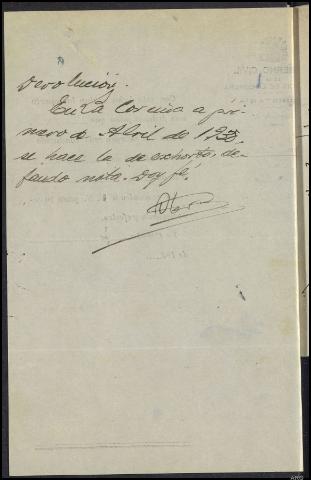 Devolución.
En La Coruña a pri-
mero de Abril de 193
se hace la de exhorto, de-
jando nota. Doy fé,